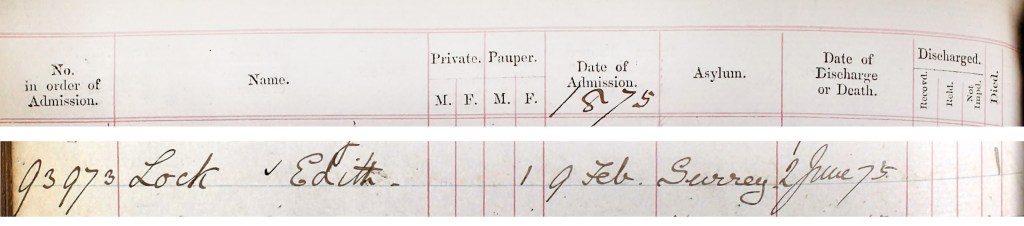 No. in order of Admission. Name. Private. M. F. Pauper. M. F. Date of Admission. 1875 Asylum. Date of Discharge or Death. Discharged. Recovd. Reld. Not Impd. Died.
93973 Lock ✓ Edith. 1 9 Feb. Surrey. 2 June 75 1